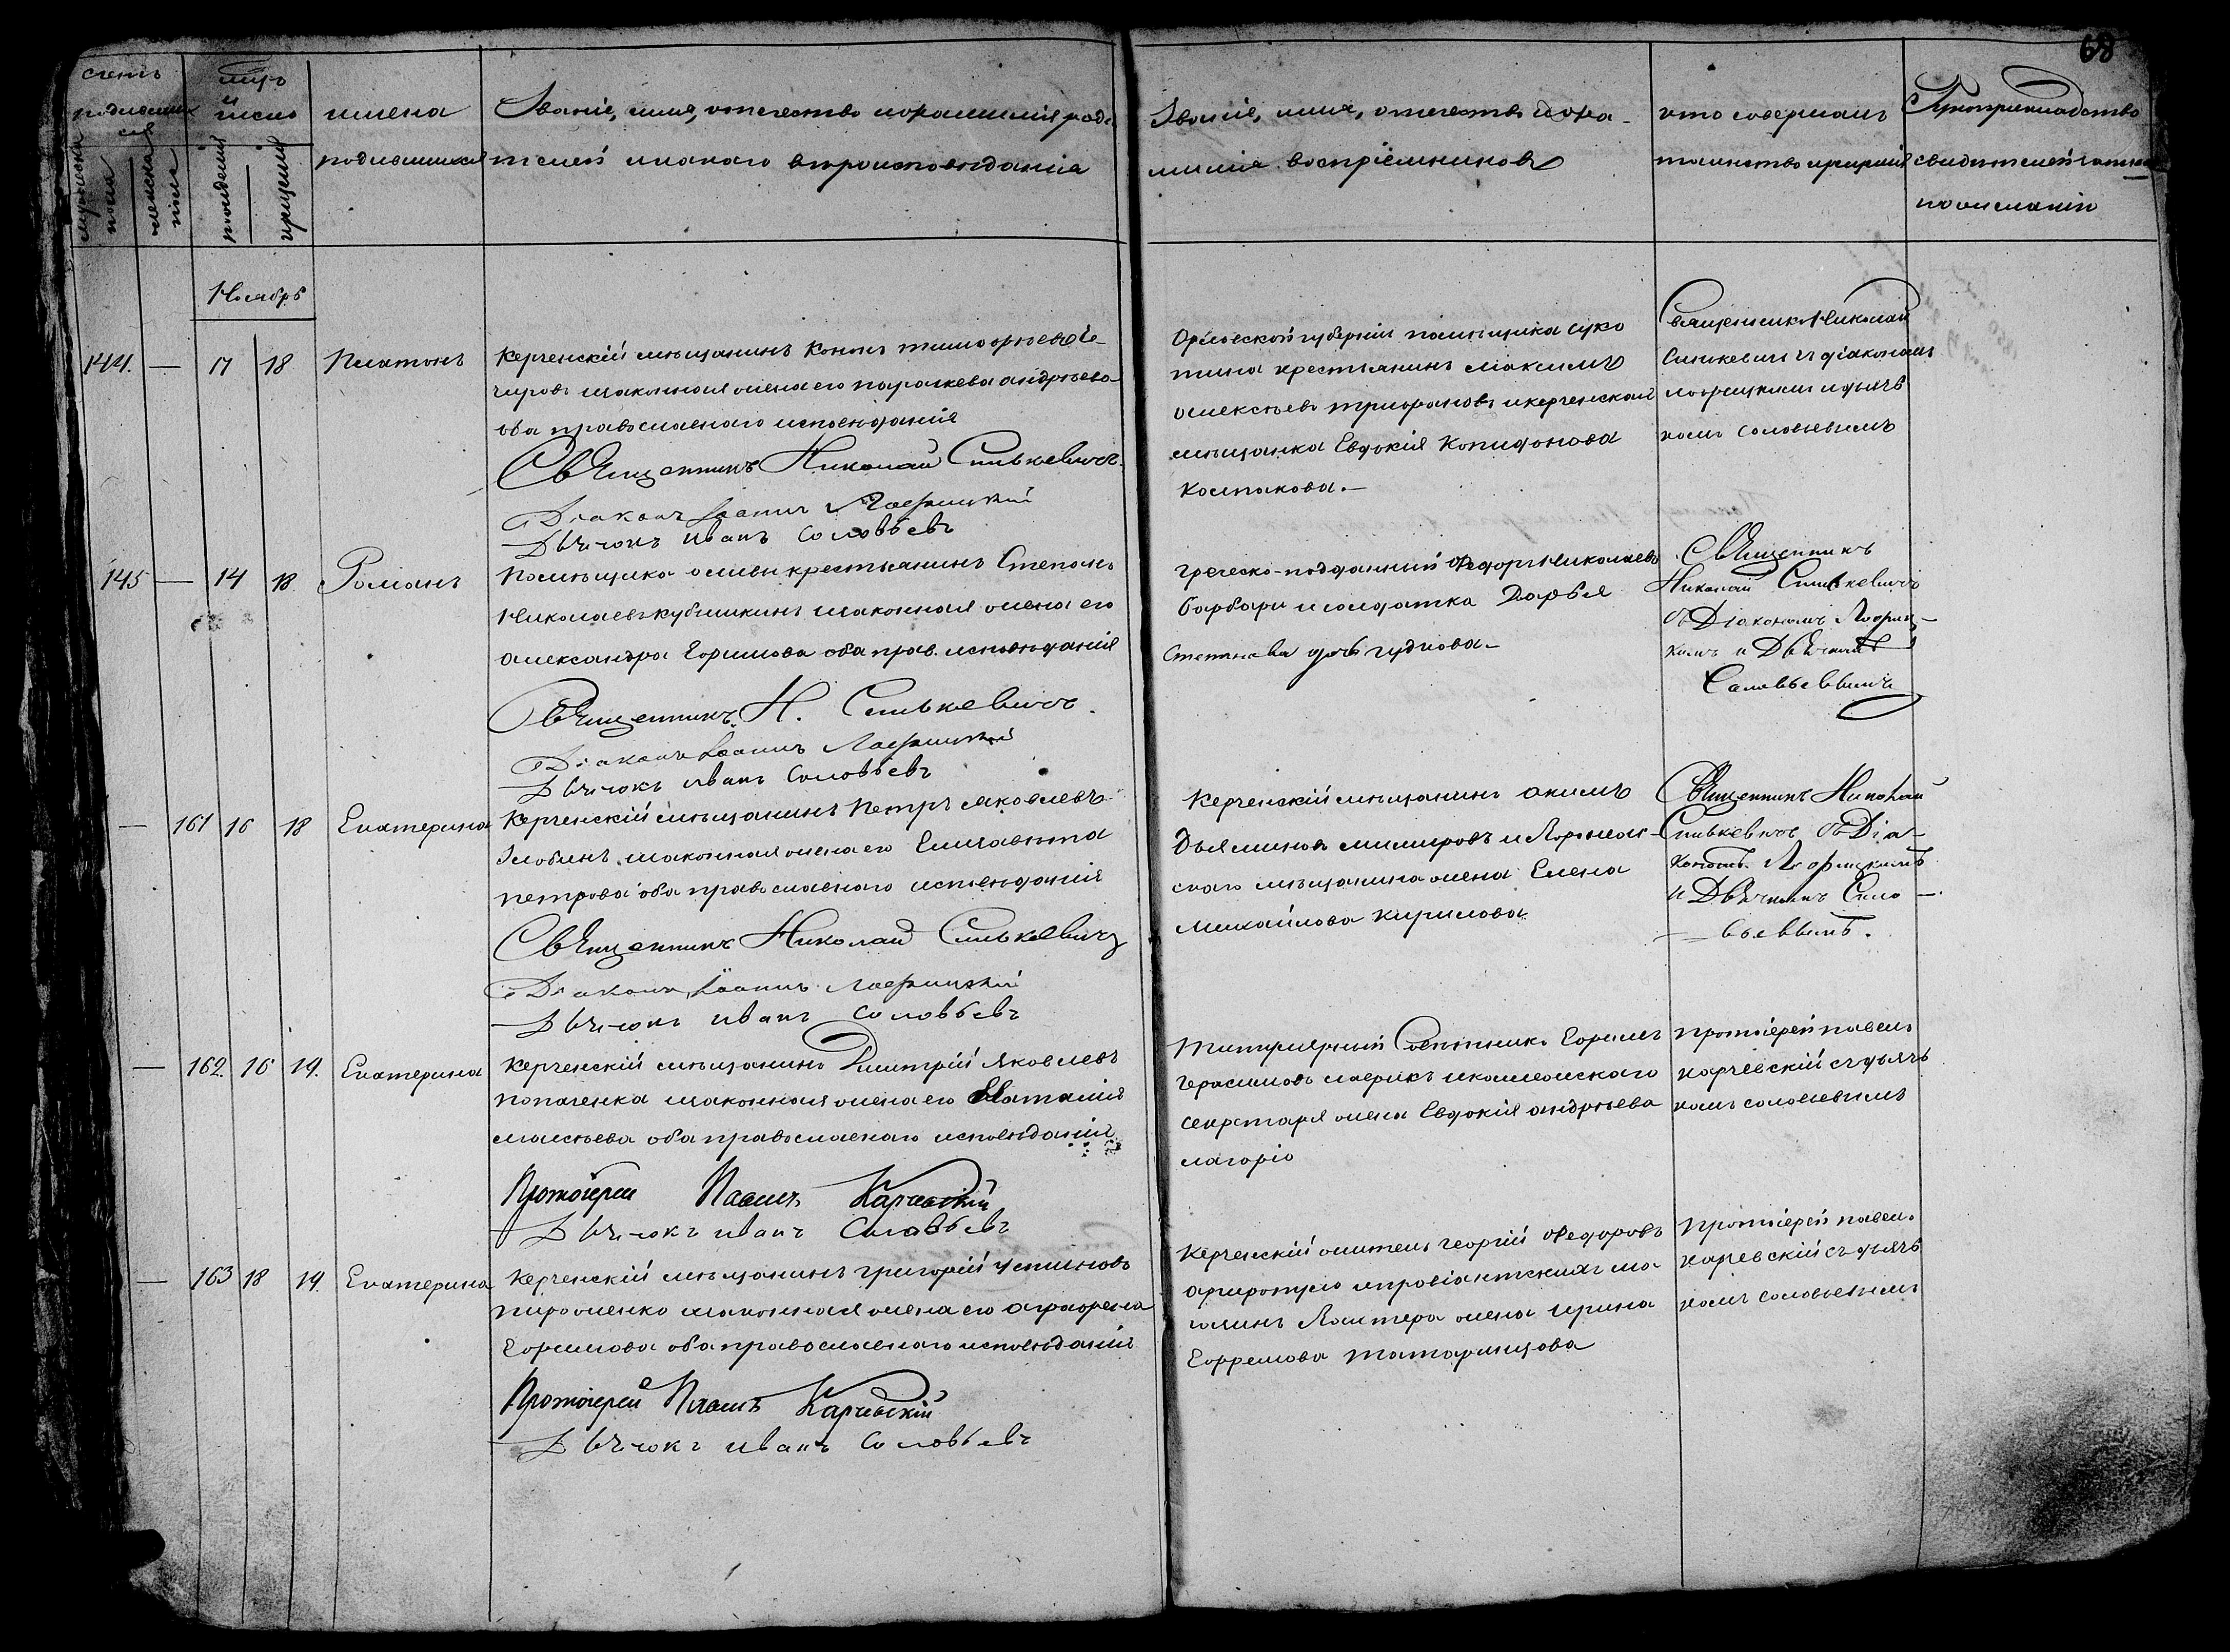 68
счетъ родившихся
мужеска пола
женска пола
мѣсяцъ и число
рожденія
крещенія
имена
родившихся
Званіе, имя, отечество и фамилія роди-
телей и какого вѣроисповѣданія
Званіе, имя, отечество и фа-
милія воспріемниковъ
кто совершалъ
таинство крещенія
Рукоприкладство
свидетелей записи
по желанію
Ноябрь
144. — 17 18 Платонъ
Керченскій мѣщанинъ Кононъ тимофѣевъ
законная жена его параскева андрѣева
оба православнаго исповѣданія
Священникъ Николай Синькевичъ.
Діаконъ Іоаннъ
Дьячокъ иванъ Соловьевъ
Орловской губерніи помѣщика сухо
тина крестьянинъ максимъ
алексѣевъ и керченская
мѣщанка Евдокія
Колпакова.—
Священникъ Николай
Синкевичъ съ діакономъ
и дьяч
комъ соловьевымъ
145 — 14 18. Романъ
Помѣщика крестьянинъ Степанъ
Николаевъ кубышкинъ законная жена его
александра Ефимова оба прав. исповѣданія
Священникъ Н. Синькевичъ.
Діаконъ Іоаннъ
Дьячокъ иванъ Соловьевъ
греческо-подданный Ѳедоръ Николаевъ
барбари и солдатка Дарья
Степанова дочь гудкова.—
Священникъ
Николай Синькевичъ
съ Діакономъ
кимъ и Дьячкомъ
Соловьевымъ
— 161 16 18 Екатерина
Керченскій мѣщанинъ Петръ яковлевъ
Злобинъ законная жена его Елисавета
петрова оба православнаго исповѣданія
Священникъ Николай Синькевичъ
Діаконъ Іоаннъ
Дьячокъ иванъ Соловьевъ
Керченскій мѣщанинъ акимъ
скаго мѣщанина жена Елена
Михайлова кирилова
Священникъ Николай
Синькевичъ съ Діа-
кономъ
и Дьячкомъ Соло—
вьевымъ.
— 162. 16 19. Екатерина
Керченскій мѣщанинъ Дмитрій Яковлевъ
попаченка законная жена его Наталія
оба православнаго исповѣданія
Протоіерей Павелъ Карчевскій
Дьячокъ иванъ Соловьевъ
Титулярный Совѣтникъ Ефимъ
герасимовъ лаврикъ
секретаря жена Евдокія андрѣева
лагоріо
протоіерей павелъ
карчевскій съ дьяч
комъ соловьевымъ
— 163 18 19. Екатерина
Керченскій мѣщанинъ григорій устиновъ
законная жена его аграфена
Ефимова оба православнаго исповѣданія
Протоіерей Павелъ Карчевскій
Дьячокъ иванъ Соловьевъ
Керченскій житель георгій Ѳедоровъ
и провіантскихъ ма
жена ирина
Ефремова татаринцова
протоіерей павелъ
карчевскій съ дьяч
комъ соловьевымъ